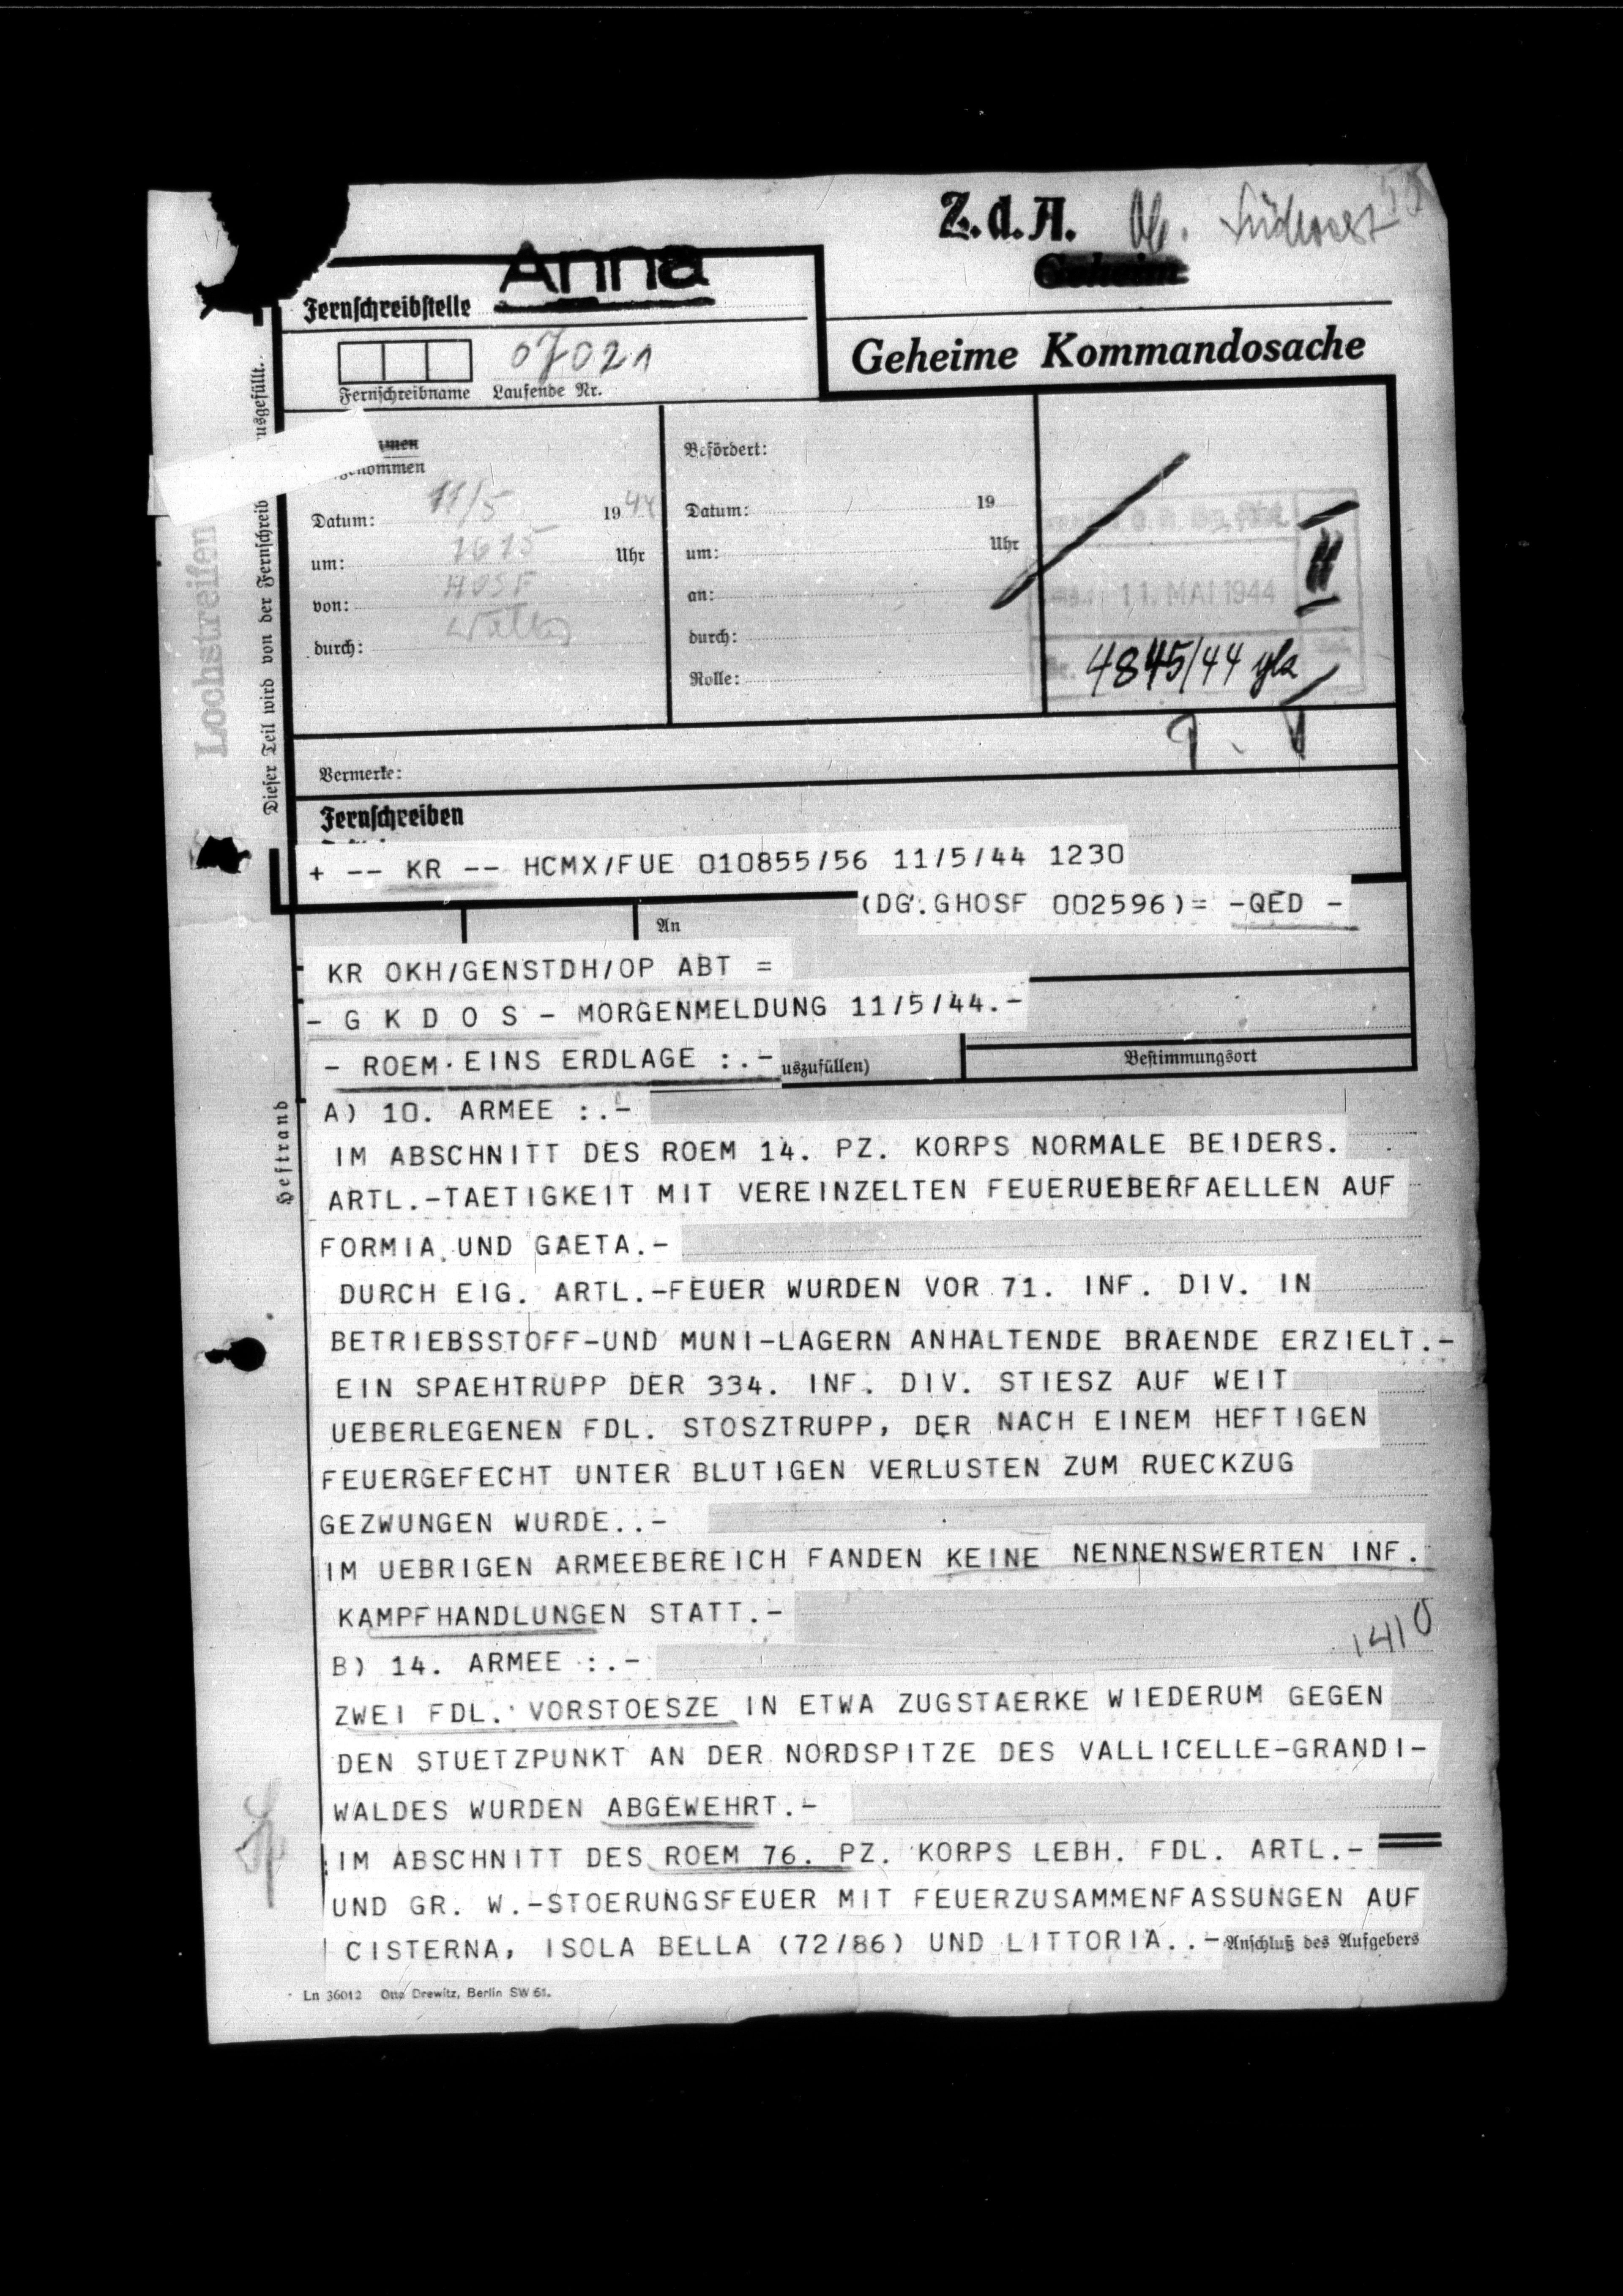 Z.d.A. Südwest
Geheim
Anna
Fernschreibstelle
Geheime Kommandosache
07021
Fernschreibname Laufende Nr.
Befördert:
Datum: 11/5 1944
um: 1615 Uhr
von: HOSF
durch:
Datum: 19
um: Uhr
an:
durch:
Rolle:
11. MAI 1944
II
Nr. 4845/44
Vermerke:
Lochstreifen
Dieser Teil wird von der Fernschreib ausgefüllt.
Fernschreiben
+ -- KR -- HCMX/FUE 010855/56 11/5/44 1230
(DG.GHOSF 002596)= -QED -
An
KR OKH/GENSTDH/OP ABT =
- G K D O S - MORGENMELDUNG 11/5/44.-
- ROEM.EINS ERDLAGE :.-
uszufüllen) Bestimmungsort
Heftrand
A) 10. ARMEE :.-
IM ABSCHNITT DES ROEM 14. PZ. KORPS NORMALE BEIDERS.
ARTL.-TAETIGKEIT MIT VEREINZELTEN FEUERUEBERFAELLEN AUF
FORMIA UND GAETA.-
DURCH EIG. ARTL.-FEUER WURDEN VOR 71. INF. DIV. IN
BETRIEBSSTOFF-UND MUNI-LAGERN ANHALTENDE BRAENDE ERZIELT.-
EIN SPAEHTRUPP DER 334. INF. DIV. STIESZ AUF WEIT
UEBERLEGENEN FDL. STOSZTRUPP, DER NACH EINEM HEFTIGEN
FEUERGEFECHT UNTER BLUTIGEN VERLUSTEN ZUM RUECKZUG
GEZWUNGEN WURDE..-
IM UEBRIGEN ARMEEBEREICH FANDEN KEINE NENNENSWERTEN INF.
KAMPFHANDLUNGEN STATT.-
1410
B) 14. ARMEE :.-
ZWEI FDL. VORSTOESZE IN ETWA ZUGSTAERKE WIEDERUM GEGEN
DEN STUETZPUNKT AN DER NORDSPITZE DES VALLICELLE-GRANDI-
WALDES WURDEN ABGEWEHRT.-
IM ABSCHNITT DES ROEM 76. PZ. KORPS LEBH. FDL. ARTL.-
UND GR. W.-STOERUNGSFEUER MIT FEUERZUSAMMENFASSUNGEN AUF
CISTERNA, ISOLA BELLA (72/86) UND LITTORIA..-
Anschluß des Aufgebers
Ln 36012 Otto Drewitz, Berlin SW 61.